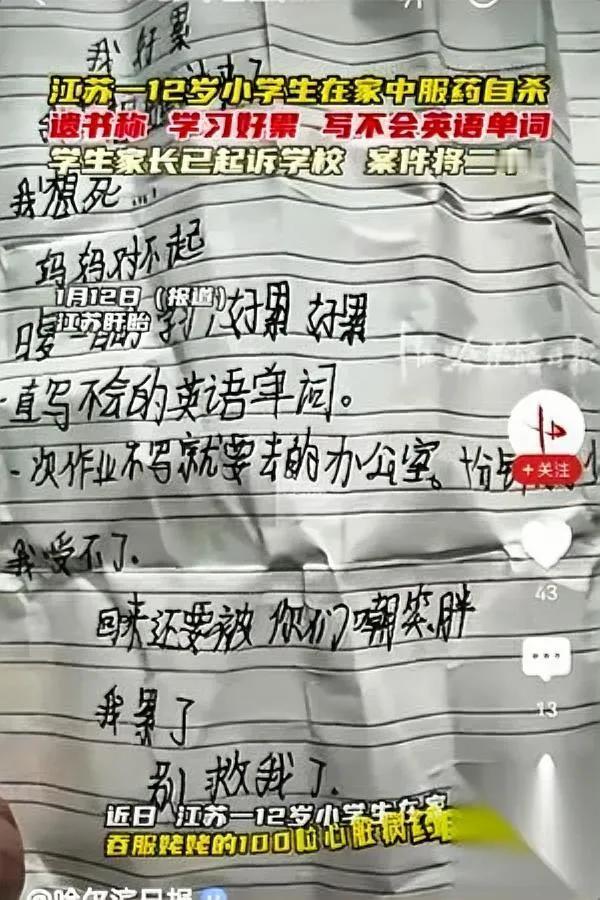 我好累
江苏一12岁小学生在家中服药自杀
遗书称 学习好累 写不会英语单词
学生家长已起诉学校 案件将二
我想死...
妈妈对不起
1月12日（报道）
江苏盱眙
好累 好累
一直写不会的英语单词。
一次作业不写就要去的办公室。十分钟
我受不了.
+关注
43
回来还要被你们嘲笑胖
13
我累了
别救我了.
近日 江苏一12岁小学生在家
吞服姥姥的100粒心脏病药
@哈尔滨日报